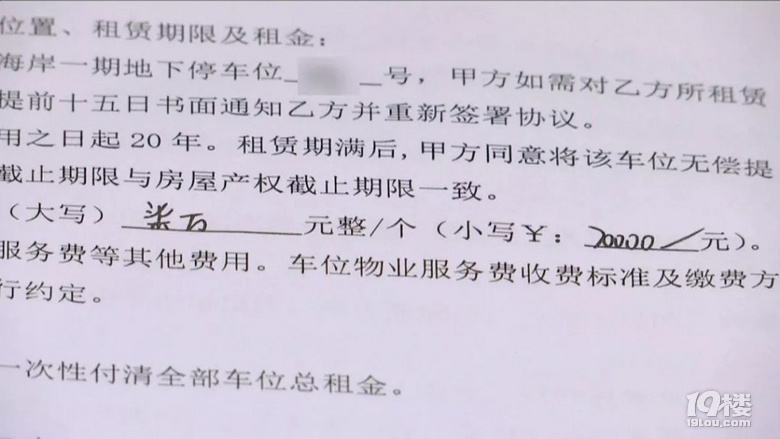 位置、租赁期限及租金：
海岸一期地下停车位 号，甲方如需对乙方所租赁
提前十五日书面通知乙方并重新签署协议。
用之日起 20 年。租赁期满后，甲方同意将该车位无偿提
截止期限与房屋产权截止期限一致。
（大写）柒万元整/个（小写￥：70000/元）。
服务费等其他费用。车位物业服务费收费标准及缴费方
行约定。
一次性付清全部车位总租金。
19楼
19lou.com